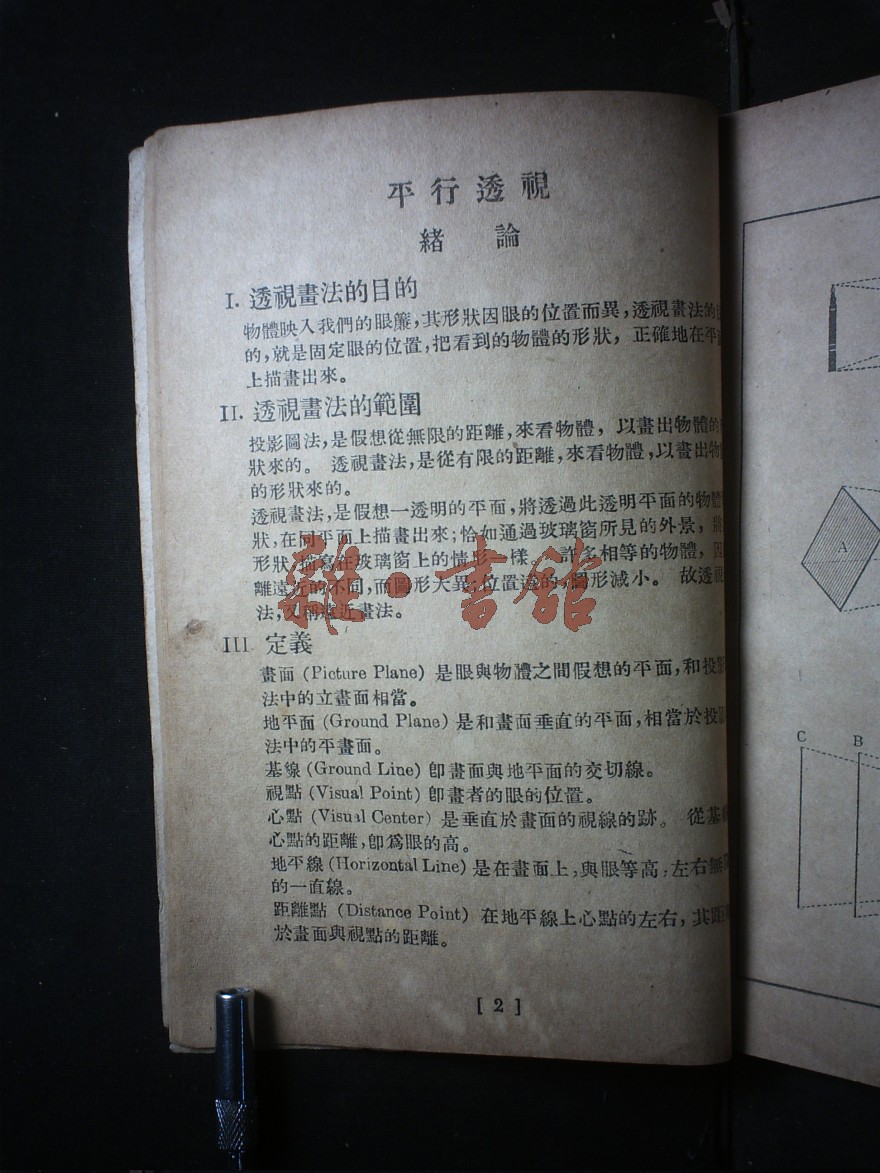 平行透視
緒 論
I. 透視畫法的目的
物體映入我們的眼簾,其形狀因眼的位置而異,透視畫法的
的,就是固定眼的位置,把看到的物體的形狀, 正確地在平
上描畫出來。
II. 透視畫法的範圍
投影圖法,是假想從無限的距離,來看物體, 以畫出物體的
狀來的。 透視畫法,是從有限的距離,來看物體,以畫出物
的形狀來的。
透視畫法,是假想一透明的平面,將透過此透明平面的物
狀,在同平面上描畫出來;恰如通過玻璃窗所見的外景,
形狀描寫在玻璃窗上的情形一樣。 許多相等的物體,
離遠近的不同,而圖形大異;位置遠的,圖形減小。 故透視
法,又稱遠近畫法。
III 定義
畫面 (Picture Plane) 是眼與物體之間假想的平面,和投影
法中的立畫面相當。
地平面 (Ground Plane) 是和畫面垂直的平面,相當於投影
法中的平畫面。
基線 (Ground Line) 卽畫面與地平面的交切線。
視點 (Visual Point) 卽畫者的眼的位置。
心點 (Visual Center) 是垂直於畫面的視線的跡。 從基
心點的距離,卽爲眼的高。
地平線 (Horizontal Line) 是在畫面上,與眼等高,左右無
的一直線。
距離點 (Distance Point) 在地平線上心點的左右,其距
於畫面與視點的距離。
[ 2 ]
A
C
B
雜·書館